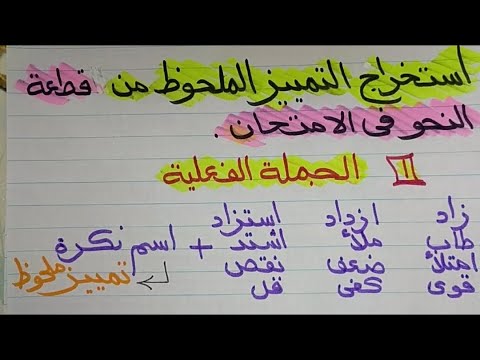 استخراج التمييز الملحوظ من قطعة
النحو فى الامتحان .
1 الجملة الفعلية
زاد ازداد استزاد
طاب ملأ اشتد + اسم نكرة
امتلأ ضعف نقص تمييز ملحوظ
قوى كفى قل